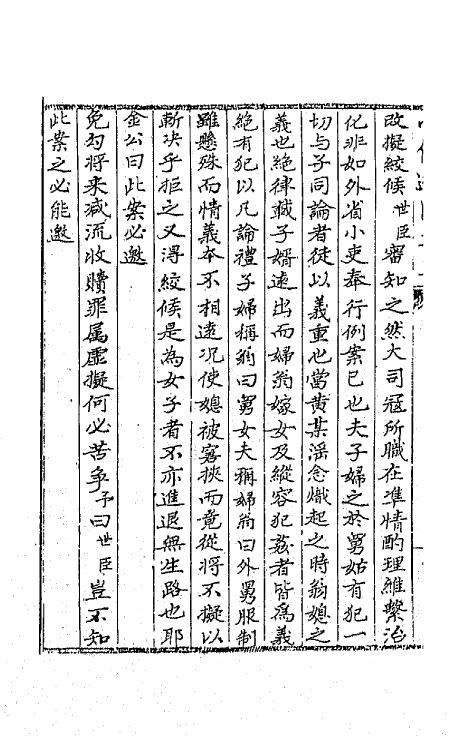 改擬絞候世臣審知之然大司冦所職在準情酌理維繫治
化非如外省小吏奉行例案已也夫子婦之於舅姑有犯一
切与子同論者徒以義重也當黄某淫念熾起之時翁媳之
義也絶律載子婿遠出而婦翁嫁女及縱容犯姦者皆為義
絶有犯以凡論禮子婦稱翁曰舅女夫稱婦翁曰外舅服制
雖懸殊而情義本不相遠况使媳被窘挾而竟從將不擬以
斬决乎拒之又淂絞候是為女子者不亦進退無生路也耶
金公曰此案必邀
免勾将来减流收贖罪属虚擬何必苦争予曰世臣豈不知
此案之必能邀